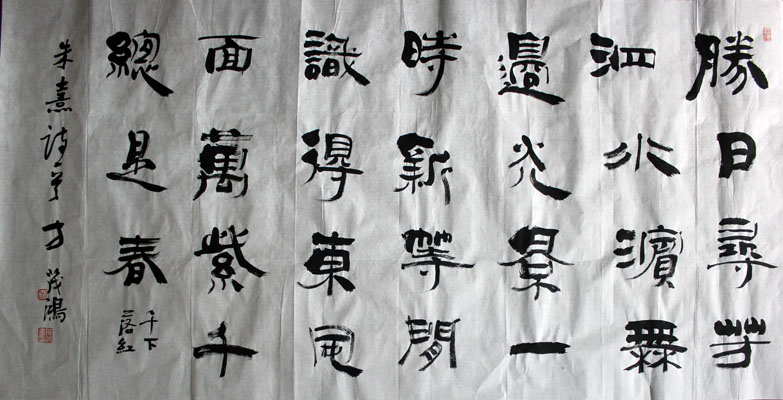 勝日尋芳
泗水濱無
邊光景一
時新等閒
識得東風
面萬紫千
總是春
千下
落紅
朱熹詩 茂鴻